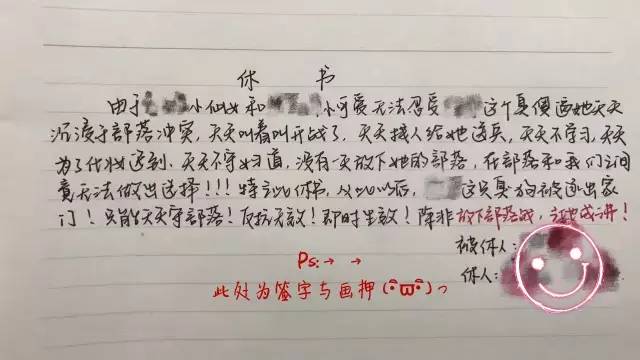 休 书
由于 小仙女和 小可爱无法忍受 这个臭傻逼她天天
沉浸于部落冲突，天天叫着叫开战了，天天找人给她送兵，天天不学习，天天
为了代 迟到、天天不守妇道，没有一天放下她的部落，在部落和我们之间
竟无法做出选择！！！特立此休书，从此以后， 这只臭狗被逐出家
门！只能天天守部落！反抗无效！即时生效！除非放下部落战，立地成讲！
被休人：
休人：
Ps:→ →
此处为签字与画押(